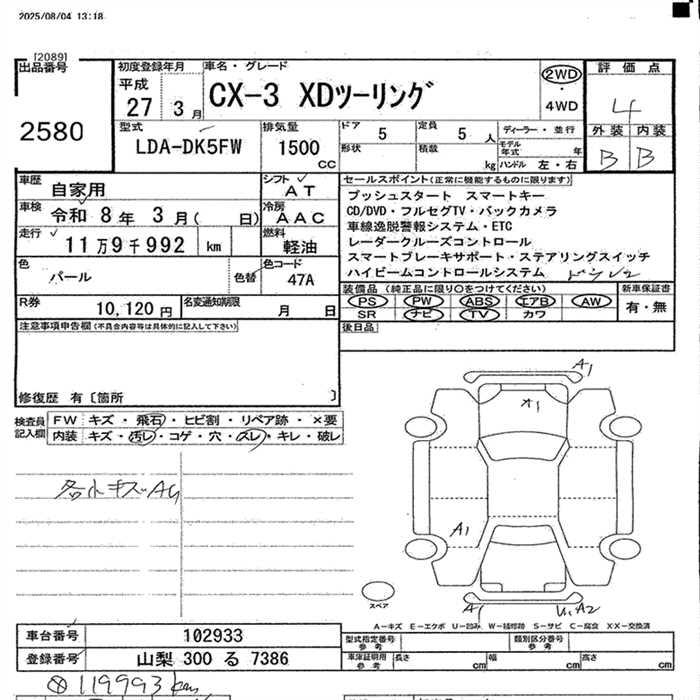 2025/08/04 13:18
[2089]
出品番号
2580
初度登録年月
平成
27 3月
車名・グレード
CX-3 XDツーリング
2WD
・
4WD
評価点
4
外装 内装
B B
型式
LDA-DK5FW
排気量
1500
cc
ドア 5
定員 5 人
形状
積載 kg
ディーラー・並行
モデル年式 年
ハンドル 左・右
車歴 自家用
シフト AT
車検 令和 8年 3月( 日)
冷房 AAC
走行 11万9千992 km
燃料 軽油
色 パール 色替
色コード 47A
R券 10,120円
名変通知期限 月 日
セールスポイント(正常に機能するものに限ります)
プッシュスタート スマートキー
CD/DVD・フルセグTV・バックカメラ
車線逸脱警報システム・ETC
レーダークルーズコントロール
スマートブレーキサポート・ステアリングスイッチ
ハイビームコントロールシステム
装備品 (純正品に限り○をつけてください)
PS PW ABS エアB AW
SR ナビ TV カワ
新車保証書
有・無
後日品
注意事項申告欄(不具合内容等は具体的に記入して下さい)
修復歴 有〔箇所 〕
検査員記入欄
FW キズ・飛石・ヒビ割・リペア跡・×要
内装 キズ・汚レ・コゲ・穴・スレ・キレ・破レ
各小キズA4
A1
A1
A1
スペア
A1
A2
A-キズ E-エクボ U-凹ミ W-補修跡 S-サビ C-腐食 XX-交換済
車台番号 102933
登録番号 山梨 300 る 7386
型式指定番号
参考
類別区分番号
参考
車庫証明用
参考
長さ cm 幅 cm 高さ cm
119993km